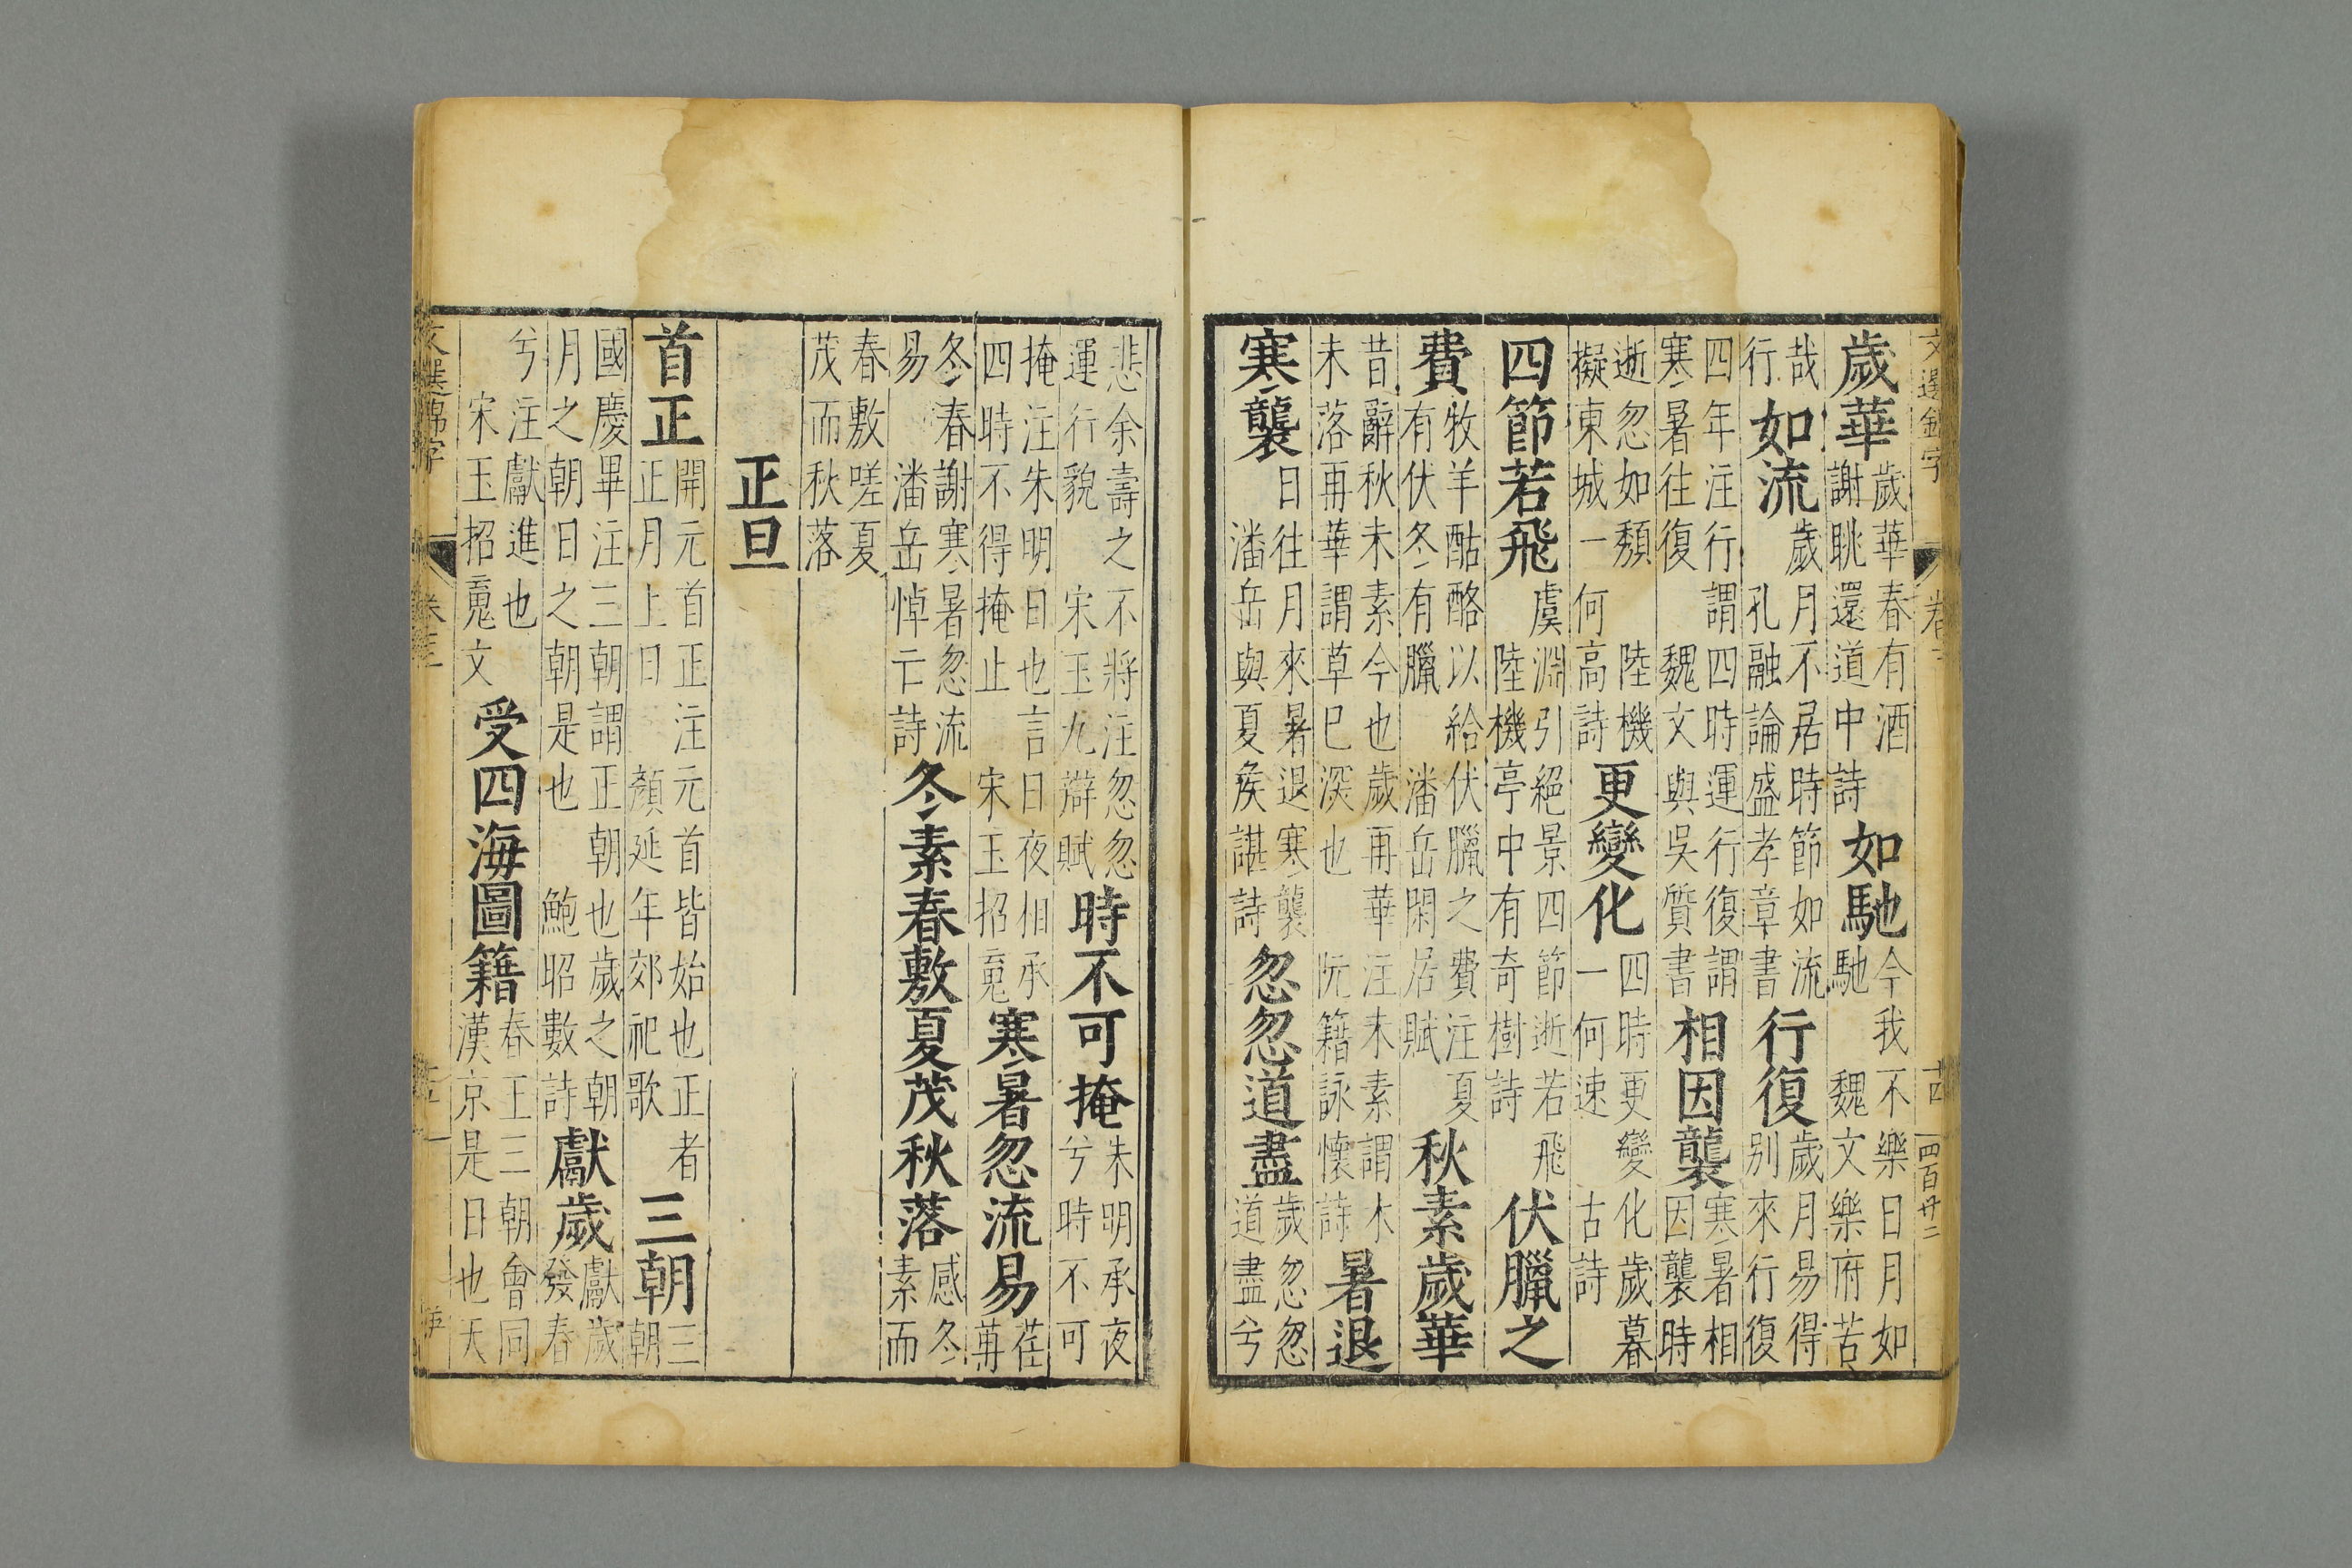 文選錦字 卷 十四 四百廿二
歲華歲華春有酒謝眺還道中詩如馳今我不樂日月如馳 魏文樂府苦
哉行如流歲月不居時節如流孔融論盛孝章書行復歲月易得别來行復
四年注行謂四時運行復謂寒暑往復 魏文與吳質書相因襲寒暑相因襲時
逝忽如頹 陸機擬東城一何高詩更變化四時更變化歲暮一何速 古詩
四節若飛虞淵引絕景四節逝若飛陸機亭中有奇樹詩伏臘之
費牧羊酤酪以給伏臘之費注夏有伏冬有臘 潘岳閑居賦秋素歲華
昔辭秋未素今也歲再華注未素謂木未落再華謂草巳深也 阮籍詠懷詩暑退
寒襲日往月來暑退寒襲潘岳與夏侯諶詩忽忽道盡歲忽忽道盡兮
悲余壽之不將注忽忽運行貌 宋玉九辯賦時不可掩朱明承夜兮時不可
掩注朱明日也言日夜相承四時不得掩止 宋玉招䰟寒暑忽流易荏苒
冬春謝寒暑忽流易 潘岳悼亡詩冬素春敷夏茂秋落感冬素而
春敷嗟夏茂而秋落
正旦
首正開元首正注元首皆始也正者正月上日 顏延年郊祀歌三朝三朝
國慶畢注三朝謂正朝也歲之朝月之朝日之朝是也 鮑昭數詩獻歲獻歲發春
兮注獻進也宋玉招䰟文受四海圖籍春王三朝會同漢京是日也天
文選錦字 卷三